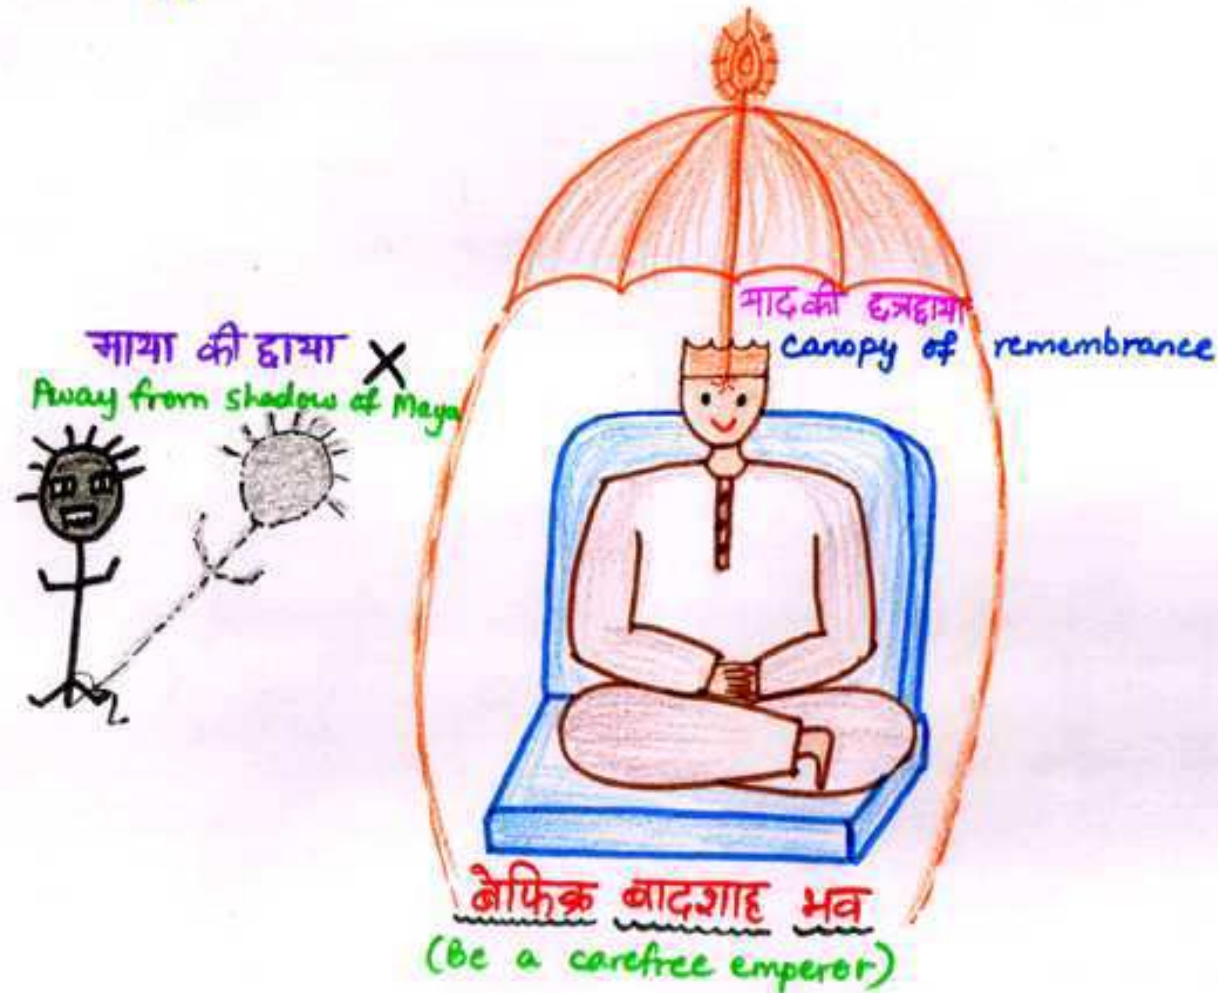 माया की छाया X
Away from shadow of Maya
याद की छत्रछाया
canopy of remembrance
बेफिक्र बादशाह भव
(Be a carefree emperor)